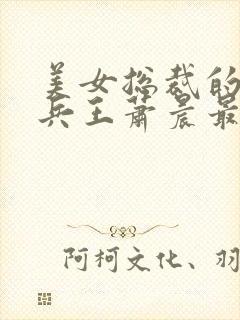 美女总裁的
兵王萧晨最
阿柯文化、羽